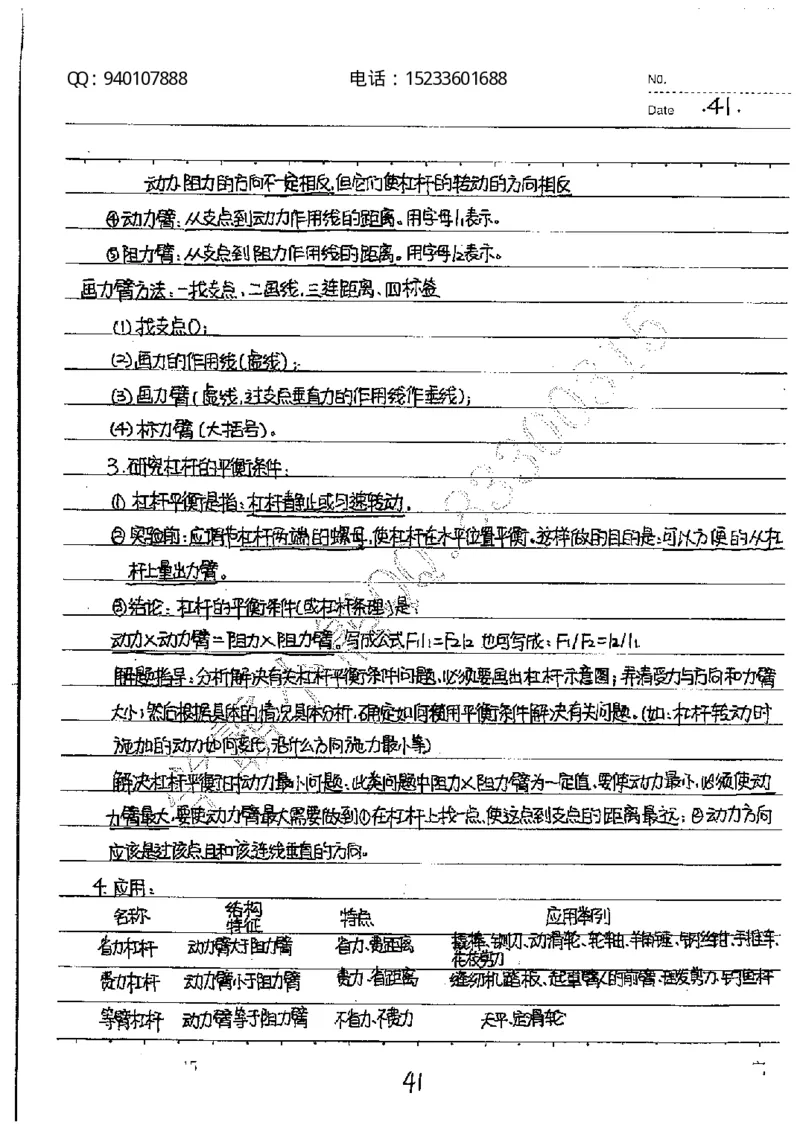 QQ：940107888 电话：15233601688 No.
Date .41.
动力、阻力的方向不一定相反,但它们使杠杆的转动的方向相反
④动力臂：从支点到动力作用线的距离。用字母l₁表示。
⑤阻力臂：从支点到阻力作用线的距离。用字母l₂表示。
画力臂方法：一找支点、二画线、三连距离、四标签
(1)找支点O;
(2)画力的作用线(虚线);
(3)画力臂(虚线,过支点垂直力的作用线作垂线);
(4)标力臂(大括号)。
3.研究杠杆的平衡条件:
① 杠杆平衡是指：杠杆静止或匀速转动.
②实验前：应调节杠杆两端的螺母,使杠杆在水平位置平衡。这样做的目的是：可以方便的从杠
杆上量出力臂。
③结论：杠杆的平衡条件(或杠杆原理)是：
动力×动力臂=阻力×阻力臂。写成公式F₁l₁=F₂l₂ 也可写成：F₁/F₂=l₂/l₁
解题指导：分析解决有关杠杆平衡条件问题,必须要画出杠杆示意图；弄清受力与方向和力臂
大小；然后根据具体的情况具体分析,确定如何使用平衡条件解决有关问题。(如：杠杆转动时
施加的动力如何变化,沿什么方向施力最小等)
解决杠杆平衡时动力最小问题：此类问题中阻力×阻力臂为一定值,要使动力最小,必须使动
力臂最大,要使动力臂最大需要做到①在杠杆上找一点,使这点到支点的距离最远；②动力方向
应该是过该点且和该连线垂直的方向。
4.应用：
名称 结构特征 特点 应用举例
省力杠杆 动力臂大于阻力臂 省力、费距离 撬棒、铡刀、动滑轮、轮轴、羊角锤、钢丝钳、手推车、花枝剪刀
费力杠杆 动力臂小于阻力臂 费力、省距离 缝纫机踏板、起重臂人的前臂、理发剪刀、钓鱼杆
等臂杠杆 动力臂等于阻力臂 不省力、不费力 天平、定滑轮
41